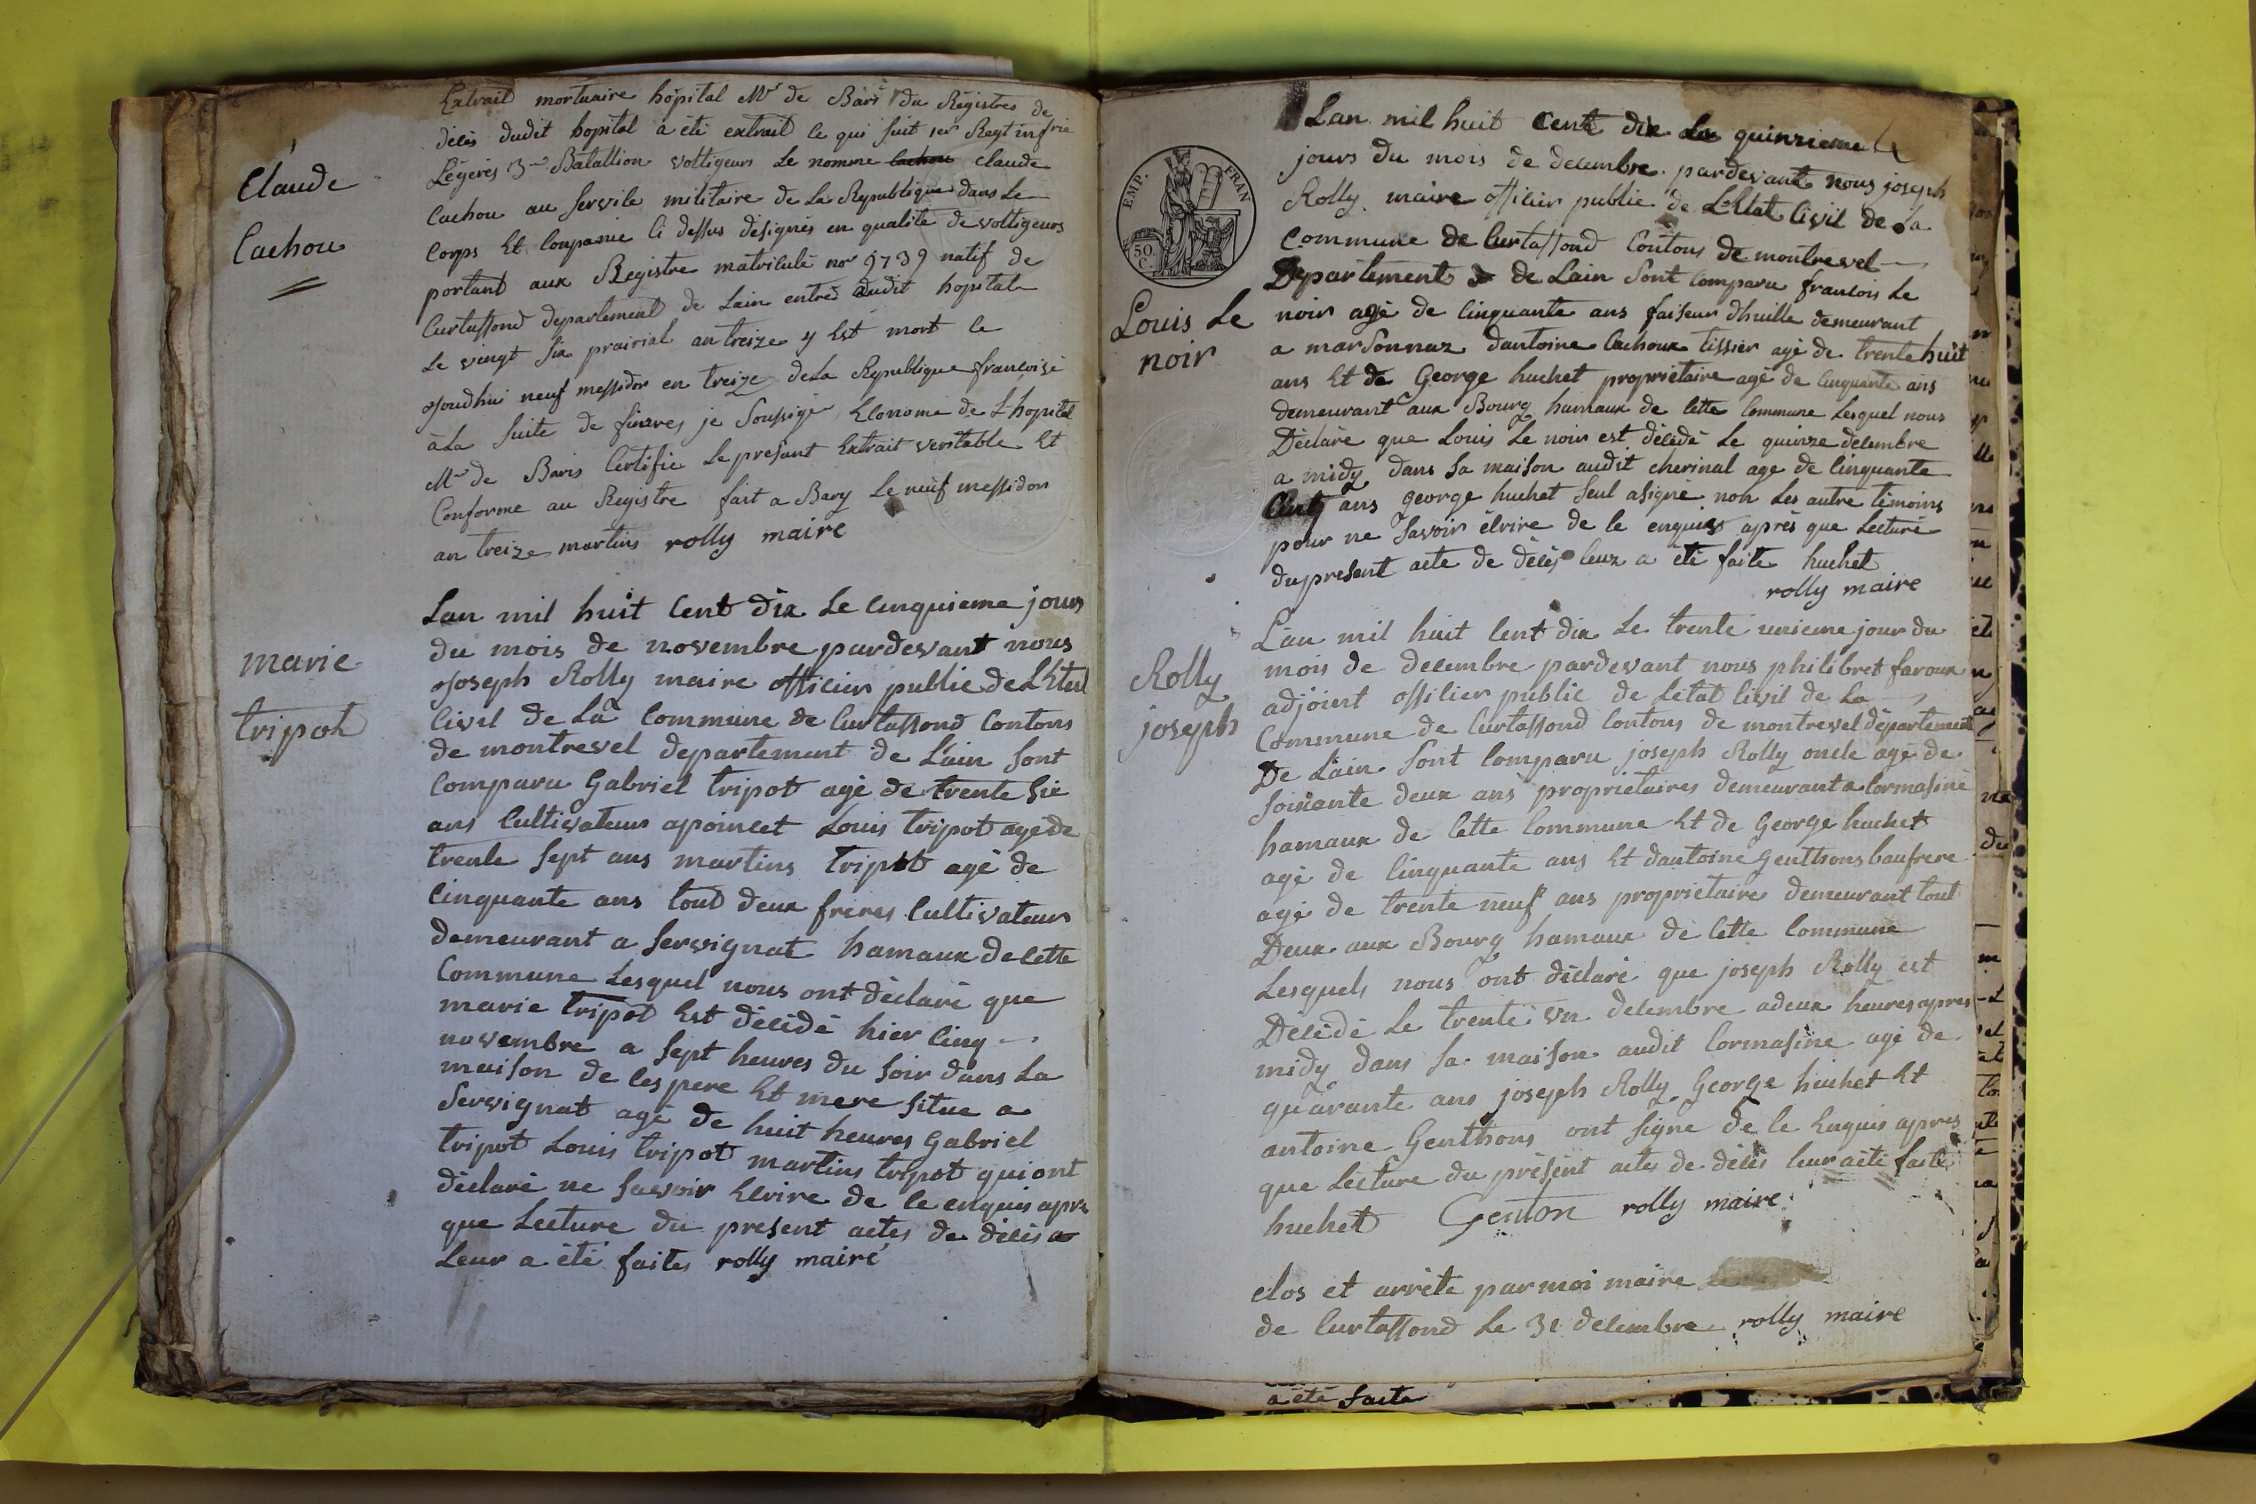 Claude
Cachou
Extrait mortuaire hôpital Mre de Bari du Régistres de
décés dudit hopital a été extrait ce qui suit 1er Regt infrie
Légéres 3me Batallion voltigeurs Le nomme cachou claude
Cachou au servile militaire de La Republique dans Le
Corps Et Conpanie Ci dessus désignés en qualité de voltigeurs
portant aux Registre matriculé no 9739 natif de
Curtassond departement de Lain entré dudit hopital
Le vingt six prairial an treize y Est mort ce
ojourdhui neuf messidor en treize deLa Republique francoise
àLa suite de fievres je Soussigé Econome de L'hopital
Mre de Baris Certifie Le présant Extrait veritable Et
Conforme au Registre fait a Bary Le neuf messidor
an treize martins rolly maire
marie
tripot
Lan mil huit Cent dix Le Cinquieme jours
du mois de novembre pardevant nous
Joseph Rolly maire officier public de LEtat
Civil de La Commune de Curtassond Contons
de montrevel departement de L'ain sont
Comparu Gabriel tripot agé de trente six
ans Cultivateur apoincet Louis tripot agé de
trente sept ans martins tripot agé de
Cinquante ans tout deux freres Cultivateur
demeurant a servignat hamaux de cette
Commune Lesquel nous ont déclaré que
marie tripot Est décédé hier Cinq
novembre a sept heures du soir dans La
maison de ces pere Et mere situe a
servignat agé de huit heures Gabriel
tripot Louis tripot martins tripot qui ont
déclaré ne savoir Ecrire de ce enquis apré
que Lecture du present actes de décés a
Leur a été faites rolly mairé
EMP. FRAN
50. C.
Louis Le
noir
Lan mil huit Cent dix Le quinzieme
jours du mois de decembre pardevant nous joseph
Rolly maire officier public de LEtat Civil de La
Commune de Curtassond Contons de montrevel
Departement de Lain sont Comparu francois Le
noir agé de Cinquante ans faiseur dhuille demeurant
a marsonnaz dantoine Cachoux tissier agé de trente huit
ans Et de George huchet propriétaire agé de Cinquante ans
demeurant aux Bourg hamaux de cette Commune Lesquel nous
Déclaré que Louis Le noir est décédé Le quinze decembre
a midy dans sa maison audit cherinal age de Cinquante
Cinq ans George huchet seul asigné non Les autre témoins
pour ne savoir écrire de ce enquis aprés que Lecturé
dupresent acte de décés leur a été faite huchet
rolly maire
Rolly
joseph
L'an mil huit Cent dix Le trente unieme jour du
mois de decembre pardevant nous philibret faroux
adjoient officier public de L'etat Civil de La
Commune de Curtassond Contons de montrevel département
De L'ain sont Comparu joseph Rolly oncle agé de
soixante deux ans proprietaires demeurant a Cormasine
hamaux de Cette Commune Et de George huchet
agé de Cinquante ans Et dantoine Genthons baufrere
agé de trente neuf ans propriétaire demeurant tout
Deux aux Bourg hamaux de Cette Commune
Lesquels nous ont déclaré que joseph Rolly est
Décédé Le trente un decembre adeux heures apres
midy dans sa maison audit Cormasine agé de
quarante ans joseph Rolly George huchet Et
antoine Genthons ont signe de ce Enquis apres
que Lecture du présent actes de décés leur aété faite
huchet Genton rolly maire
clos et arrète par moi maire
de Curtassond Le 31 decembre rolly maire
a été faite